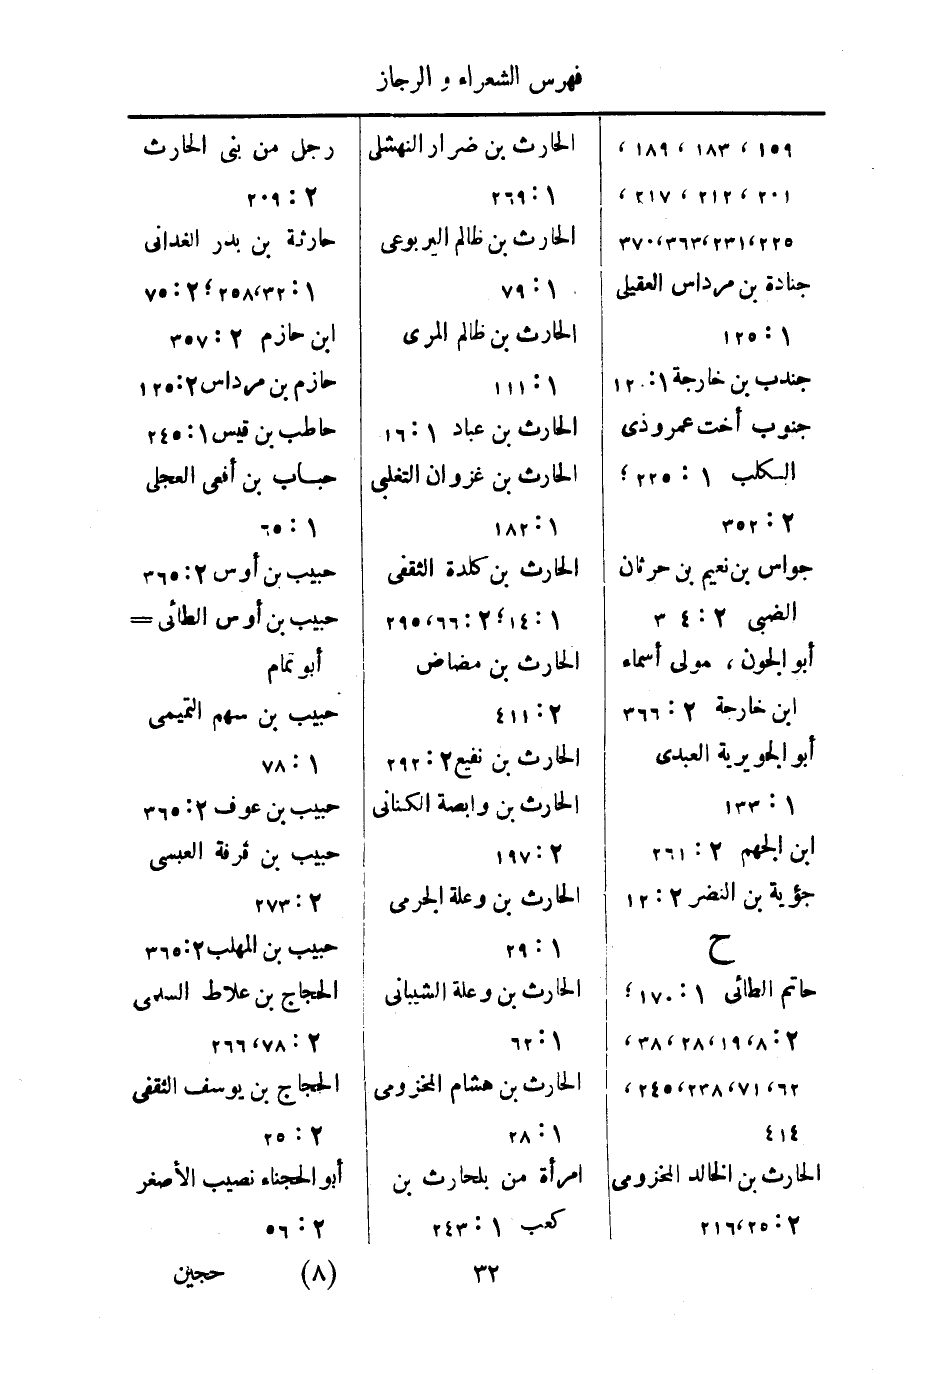 فهرس الشعراء و الرجاز
١٥٩ ، ١٨٣ ، ١٨٩ ،
٢٠١ ، ٢١٢ ، ٢١٧ ،
٢٢٥،٢٣١،٣٦٣،٣٧٠
جنادة بن مرداس العقيلى
١ : ١٢٥
جندب بن خارجة ١: ١٢٠
جنوب أخت عمرو ذى
الكلب ١ : ٢٢٥ ؛
٢ : ٣٥٢
جواس بن نعيم بن حرثان
الضبى ٢ : ٤ ٣
أبو الجون ، مولى أسماء
ابن خارجة ٢ : ٣٦٦
أبو الجويرية العبدى
١ : ١٣٣
ابن الجهم ٢ : ٢٦١
جؤية بن النضر ٢ : ١٢
ح
حاتم الطائى ١ : ١٧٠ ؛
٢ : ٨، ١٩، ٢٨، ٣٨،
٦٢، ٧١، ٢٣٨، ٢٤٥،
٤١٤
الحارث بن الخالد المخزومى
٢ : ٢٥، ٢١٦
الحارث بن ضرار النهشلى
١ : ٢٦٩
الحارث بن ظالم اليربوعى
١ : ٧٩
الحارث بن ظالم المرى
١ : ١١١
الحارث بن عباد ١ : ١٦
الحارث بن غزوان التغلبى
١ : ١٨٢
الحارث بن كلدة الثقفى
١ : ١٤؛ ٢ : ٦٦، ٢٩٥
الحارث بن مضاض
٢ : ٤١١
الحارث بن نفيع ٢ : ٢٩٢
الحارث بن وابصة الكنانى
٢ : ١٩٧
الحارث بن وعلة الجرمى
١ : ٢٩
الحارث بن وعلة الشيبانى
١ : ٦٢
الحارث بن هشام المخزومى
١ : ٢٨
امرأة من بلحارث بن
كعب ١ : ٢٤٣
رجل من بنى الحارث
٢ : ٢٠٩
حارثة بن بدر الغدانى
١ : ٣٢، ٢٥٨؛ ٢ : ٧٥
ابن حازم ٢ : ٣٥٧
حازم بن مرداس ٢ : ١٢٥
حاطب بن قيس ١ : ٢٤٥
حباب بن أفعى العجلى
١ : ٦٥
حبيب بن أوس ٢ : ٣٦٥
حبيب بن أوس الطائى =
أبو تمام
حبيب بن سهم التميمى
١ : ٧٨
حبيب بن عوف ٢ : ٣٦٥
حبيب بن قرفة العبسى
٢ : ٢٧٣
حبيب بن المهلب ٢ : ٣٦٥
الحجاج بن علاط السلمى
٢ : ٧٨، ٢٦٦
الحجاج بن يوسف الثقفى
٢ : ٢٥
أبو الحجناء نصيب الأصغر
٢ : ٥٦
٣٢ (٨) حجين